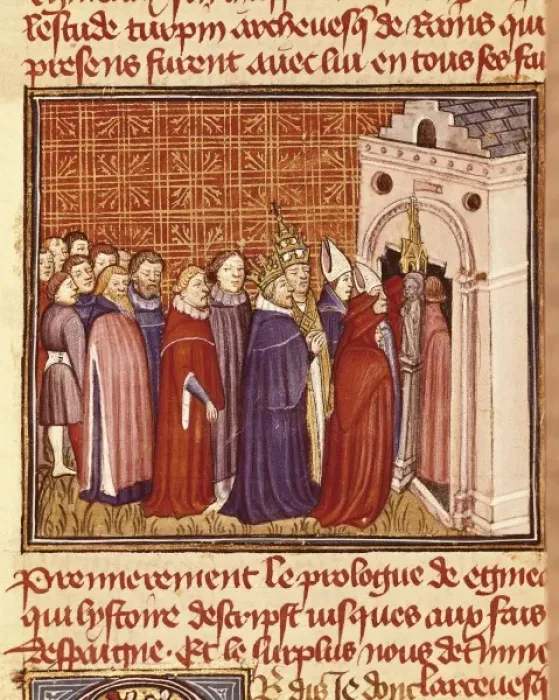 lestude turpin archeuesq̃ de Rains qui
presens furent auec lui en tous ses fai
Premierement le prologue de eginei
qui lystoire descripst iusques aux fais
despaigne. Et le surplus nous
dis Je donc larceuesq